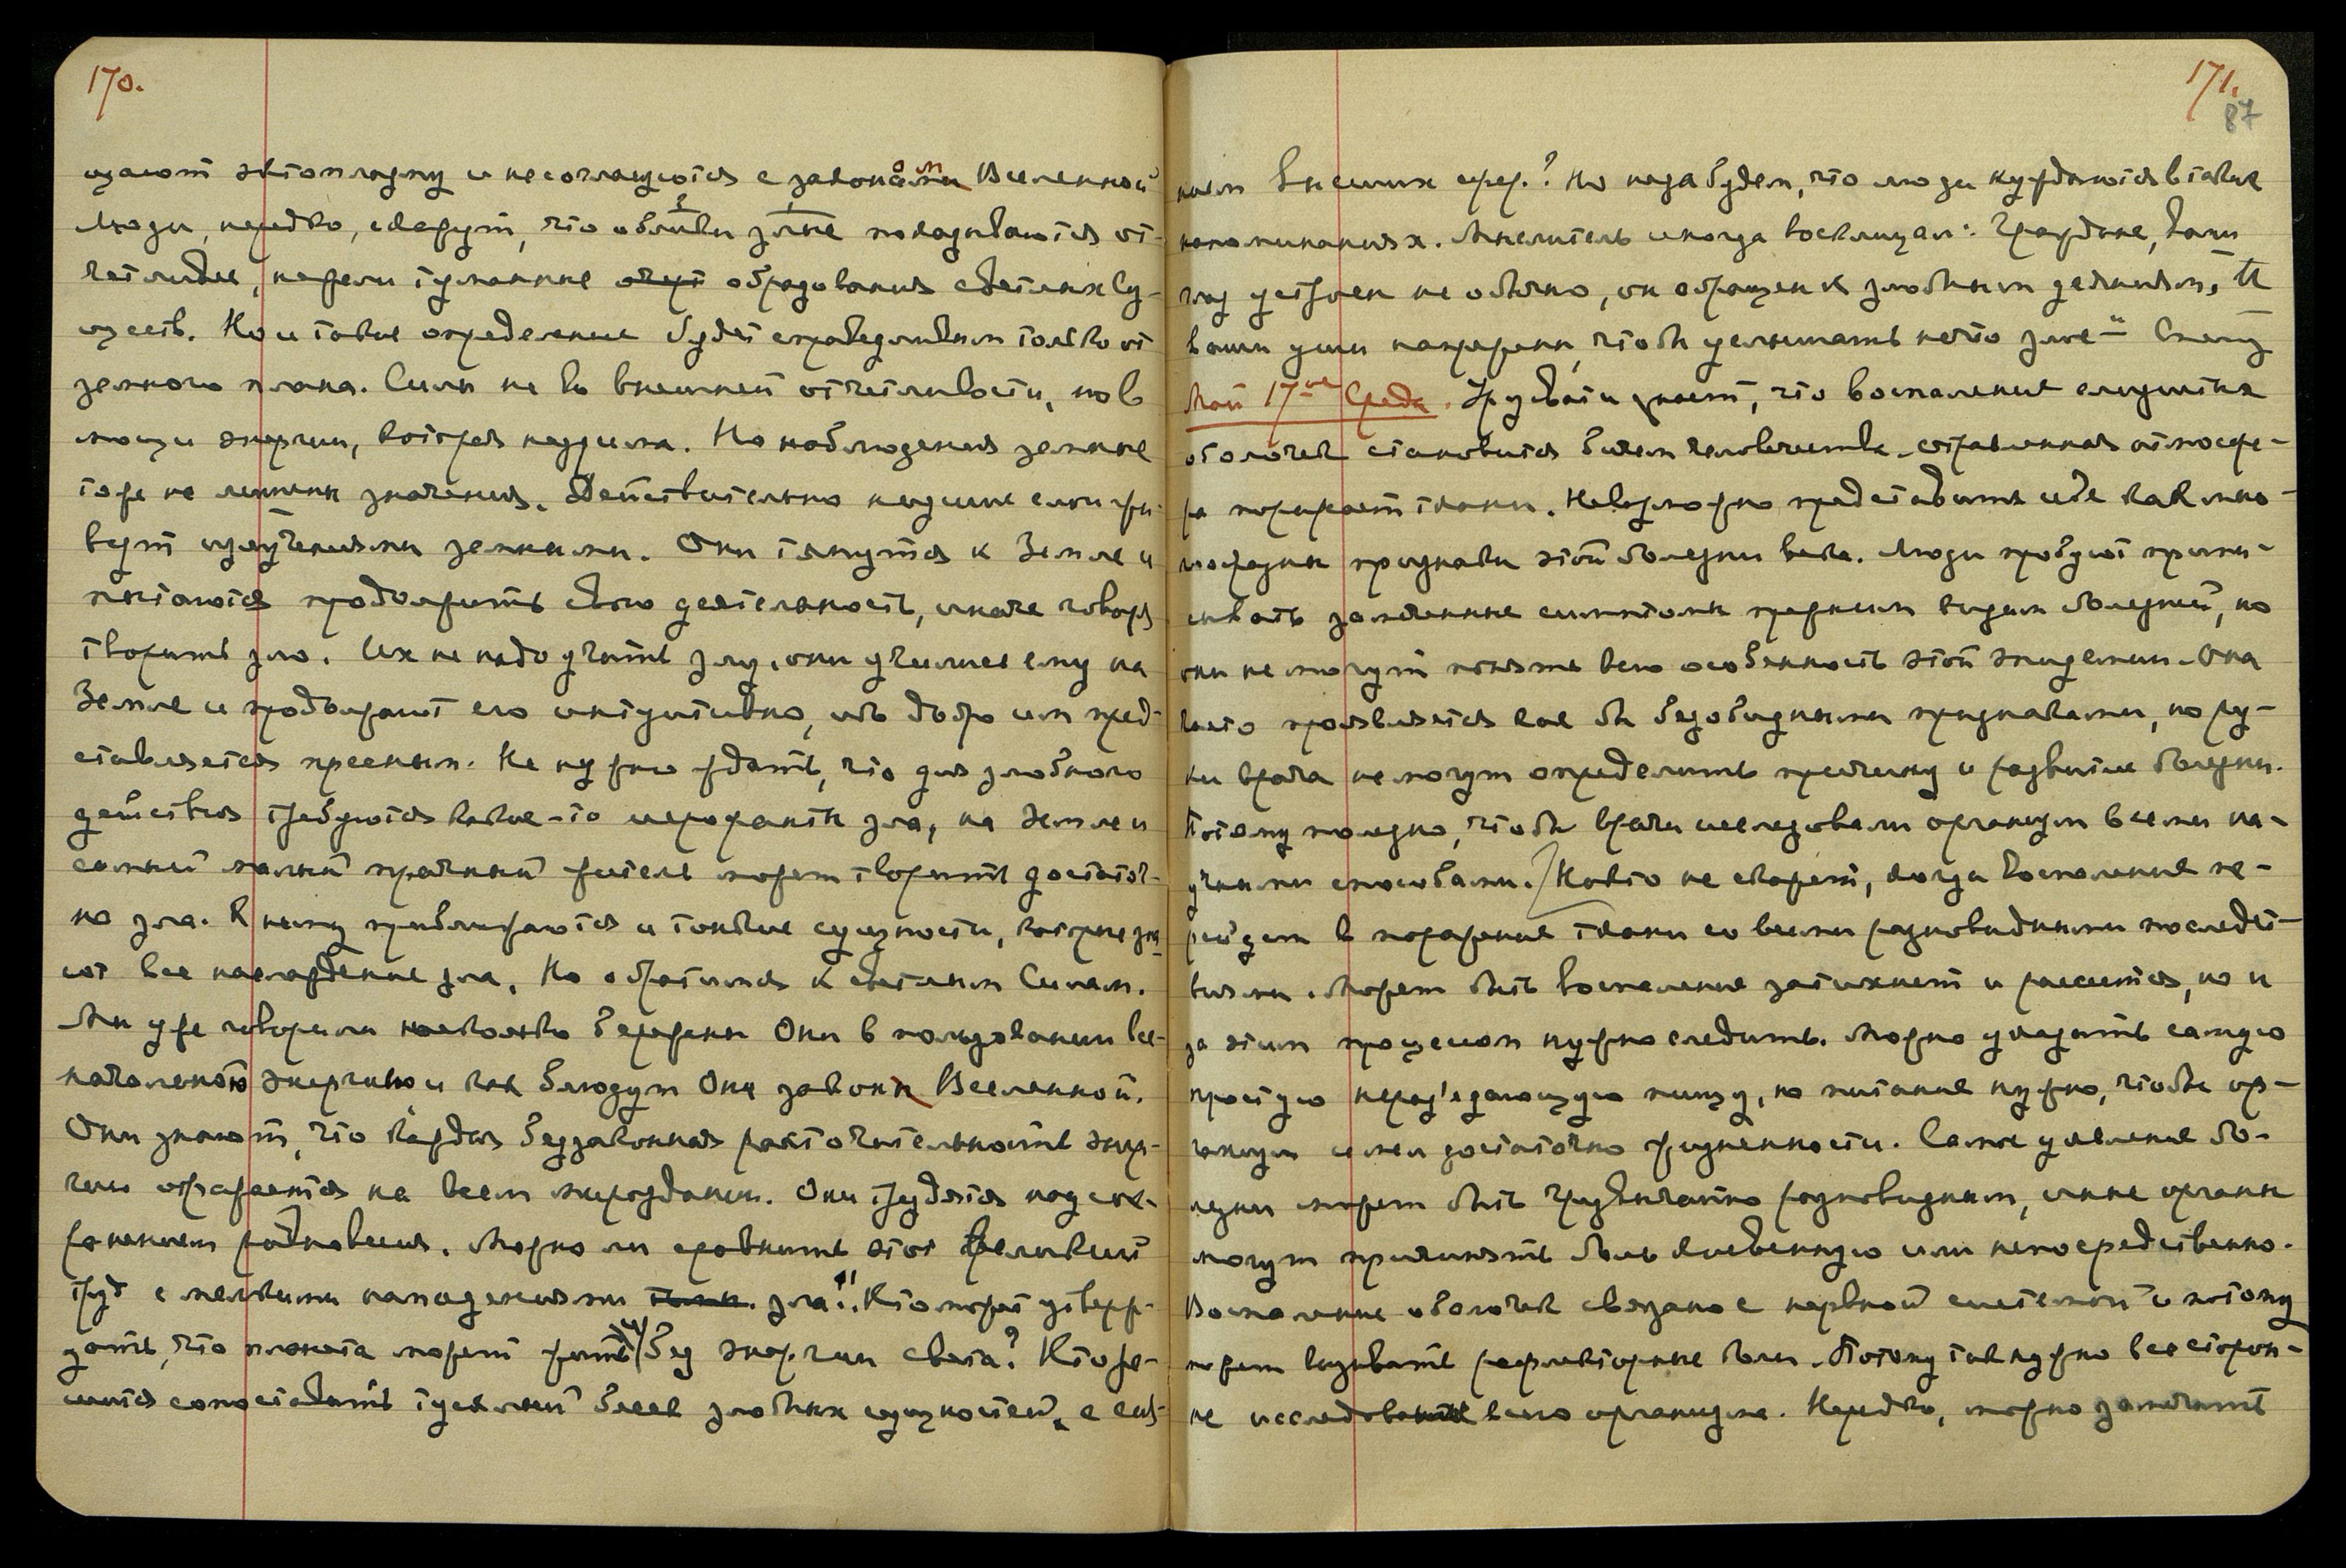 170.
щают эктоплазму и не соглашуются с законом Вселенной
Люди, нередко, скажут, что облики злые показываются от-
четливее, нежели туманные образования светлых су-
ществ. Но и такое определение будет справедливым только от
земного плана. Силы не во внешней отчетливости, но в
мощи энергии, которая незрима. Но наблюдения земные
тоже не лишены значения. Действительно низшие слои жи-
вут излучениями земными. Они тянутся к Земле и
пытаются продолжить свою деятельность, иначе говоря
творить зло. Их не надо учить злу, они учились ему на
Земле и продолжают его инстинктивно, ибо добро им пред-
ставляется пресным. Не нужно ждать, что для злобного
действия требуются какие-то иерофанты зла, на Земле и
самый малый мрачный житель может творить достаточ-
но зла. К нему приближаются и тонкие сущности, которые зна-
ют все наслаждение зла. Но обратимся к светлым Силам.
Мы уже говорили насколько бережны Они в пользовании все-
начальною энергиею и как блюдут Они закон Вселенной.
Они знают, что каждая беззаконная расточительность энер-
гии отражается на всем мироздании. Они трудятся над сох-
ранением равновесия. Можно ли сравнить этот великий
труд с мелкими нападениями зла!. Кто может утверж-
дать, что планета может жить без энергии света? Кто ре-
шится сопоставить тусклый блеск злобных сущностей, с сия-
171.
87
нием Высших сфер? Но не забудем, что люди нуждаются в таких
напоминаниях. Мыслитель иногда восклицал: Граждане, ваш
глаз устроен не обычно, он обращен к злобным деяниям, и
ваши уши напряжены, чтобы услышать нечто злое —" Спешу
Май 17ое Среда. Урусвати знает, что воспаление слизистых
оболочек становится бичом человечества. отравленная атмосфе-
ра поражает ткани. Невозможно представить себе как мно-
гообразны признаки этой болезни века. Люди пробуют припи-
сывать замеченные симптомы прежним видам болезней, но
они не могут понять всю особенность этой эпидемии. Она
часто проявляется как бы безобидными признаками, но ру-
ки врача не могут определить причину и развитие болезни.
Потому полезно, чтобы врачи исследовали организм всеми на-
учными способами. Никто не скажет, когда воспаление пе-
рейдет в поражение ткани со всеми разновидными последст-
виями. Может быть воспаление затихнет и рассеется, но и
за этим процессом нужно следить. Можно указать самую
простую неразъедающую пищу, но питание нужно, чтобы ор-
ганизм имел достаточно жизненности. Самое явление бо-
лезни может быть чрезвычайно разновидным, иные органы
могут причинять боль косвенную или непосредственно.
Воспаление оболочек связано с нервной системой и потому
может вызывать рефлекторные боли. Потому так нужно всесторон-
не исследование всего организма. Нередко, можно заметить